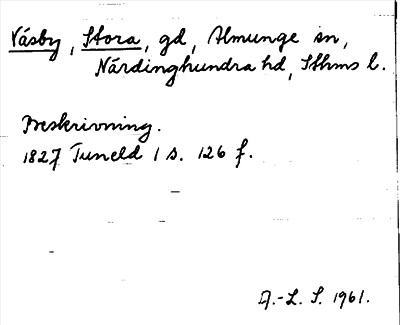 Väsby, Stora, gd, Almunge sn,
Närdinghundra hd, Sthms l.
Beskrivning.
1827 Tuneld 1 s. 126 f.
A.-L. S. 1961.